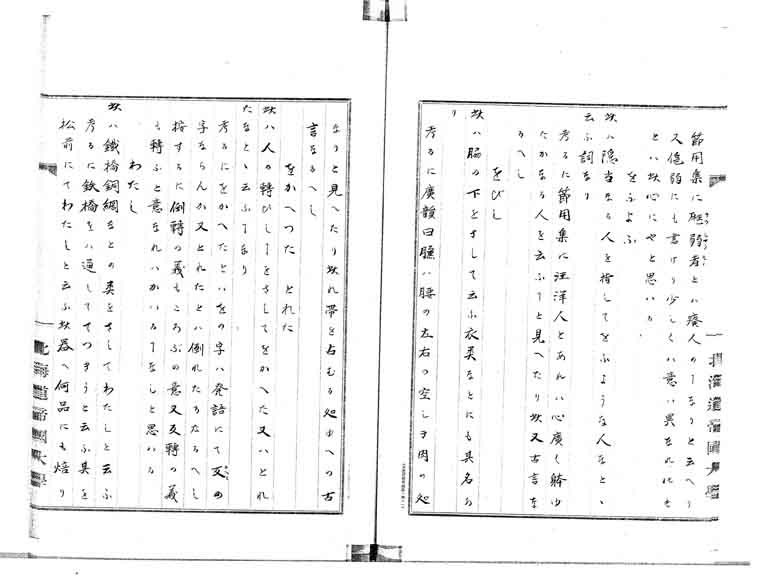 節用集に尫弱者とハ癈人の𬼀なりと云へり
又尩弱にも書けり少しくハ意ハ異なれ𪜈
とハ此心にやと思いる
をふよふ
此ハ隠当なる人を指してをふような人なとゝ
云ふ詞なり
考るに節用集に汪洋人とあれハ心廣く躰ゆ
たかなる人を云ふ𬼀と見へたり此又古言な
るへし
をびし
此ハ脇の下をさして云ふ衣类なとにも其名あ
り
考るに廣韻曰臁ハ腰の左右の空しき肉の処
なりと見へたり此れ帯を占むる処ゆへの古
言なるへし
をかへつた とれた
此ハ人の轉ひし𬼀をさしてをかへた又ハとれ
たなとゝ云ふ𬼀なり
考るにをかへたといをの字ハ発語にて反の
字ならんか又とれたとハ倒れたるなるへし
按するに倒轉の義もころふの意又反轉の義
も轉ふと意なれハかいる𬼀なしと思いる
わたし
此ハ鐵橋銅網なとの类をさしてわたしと云ふ
考るに鉄橋をハ通しててつきうと云ふ具を
松前にてわたしと云ふ此器へ何品にも焙り
北海道帝國大學
北海道帝國大學